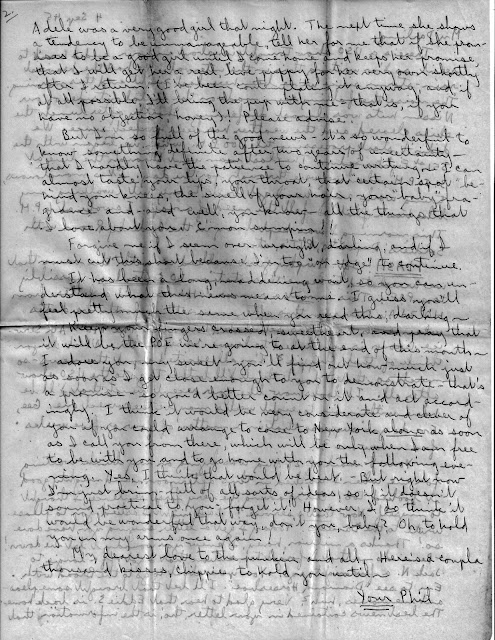 2.
Adele was a very good girl that night. The next time she shows
a tendency to be unmanageable, tell her for me that if she prom-
ises to be a good girl until I come home and keeps her promise
that I will get her a real, live puppy for her very own shortly
after I return. I've been contemplating it anyway, and if
at all possible, I'll bring the pup with me - that is, if you
have no objection, honey! Please advise.
But I'm so full of the good news - it's so wonderful to
know something definite after two years of uncertainty -
that I haven't the patience to continue writing. I can
almost taste your lips, your throat, that certain spot "be-
hind your knees, the smell of your hair, your baby fra-
grance and - and - well, you know - all the things that
I love about you
Forgive me if I seem over-wrought, darling, and if I
must cut this short because I'm too "on edge" to continue.
It has been a long, maddening wait, so you can un-
derstand what this news means to me. I guess you'll
feel pretty much the same when you read this, darling -
Keep your fingers crossed, sweetheart, and pray that
it will be the POE we're going to at the end of this month -
I adore you, my sweet - you'll find out how much just
as soon as I get close enough to you to demonstrate - that's
a promise - so you'd better count on it and act accord-
ingly. I think it would be very considerate and clever of
you if you could arrange to come to New York alone as soon
as I call you from there, which will be only when I am free
to be with you and to go home with you the following eve-
ning. Yes, I think that would be best. - But right now
I'm just brim-full of all sorts of ideas, so if it doesn't
sound practical to you - forget it! However, I do think it
would be wonderful that way, don't you, baby? Oh, to hold
you in my arms once again!
My dearest love to the punkin and all. Here's a coupla
thousand kisses, Chippie, to hold you until -
Your Phil